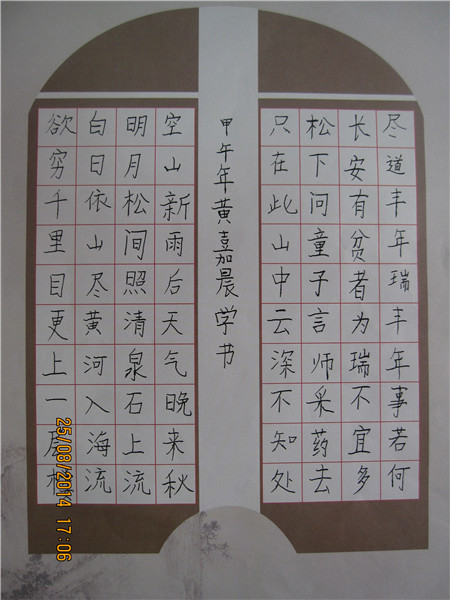 尽道丰年瑞丰年事若何
长安有贫者为瑞不宜多
松下问童子言师采药去
只在此山中云深不知处
甲午年黄嘉晨学书
空山新雨后天气晚来秋
明月松间照清泉石上流
白日依山尽黄河入海流
欲穷千里目更上一层楼
25/08/2014 17:06